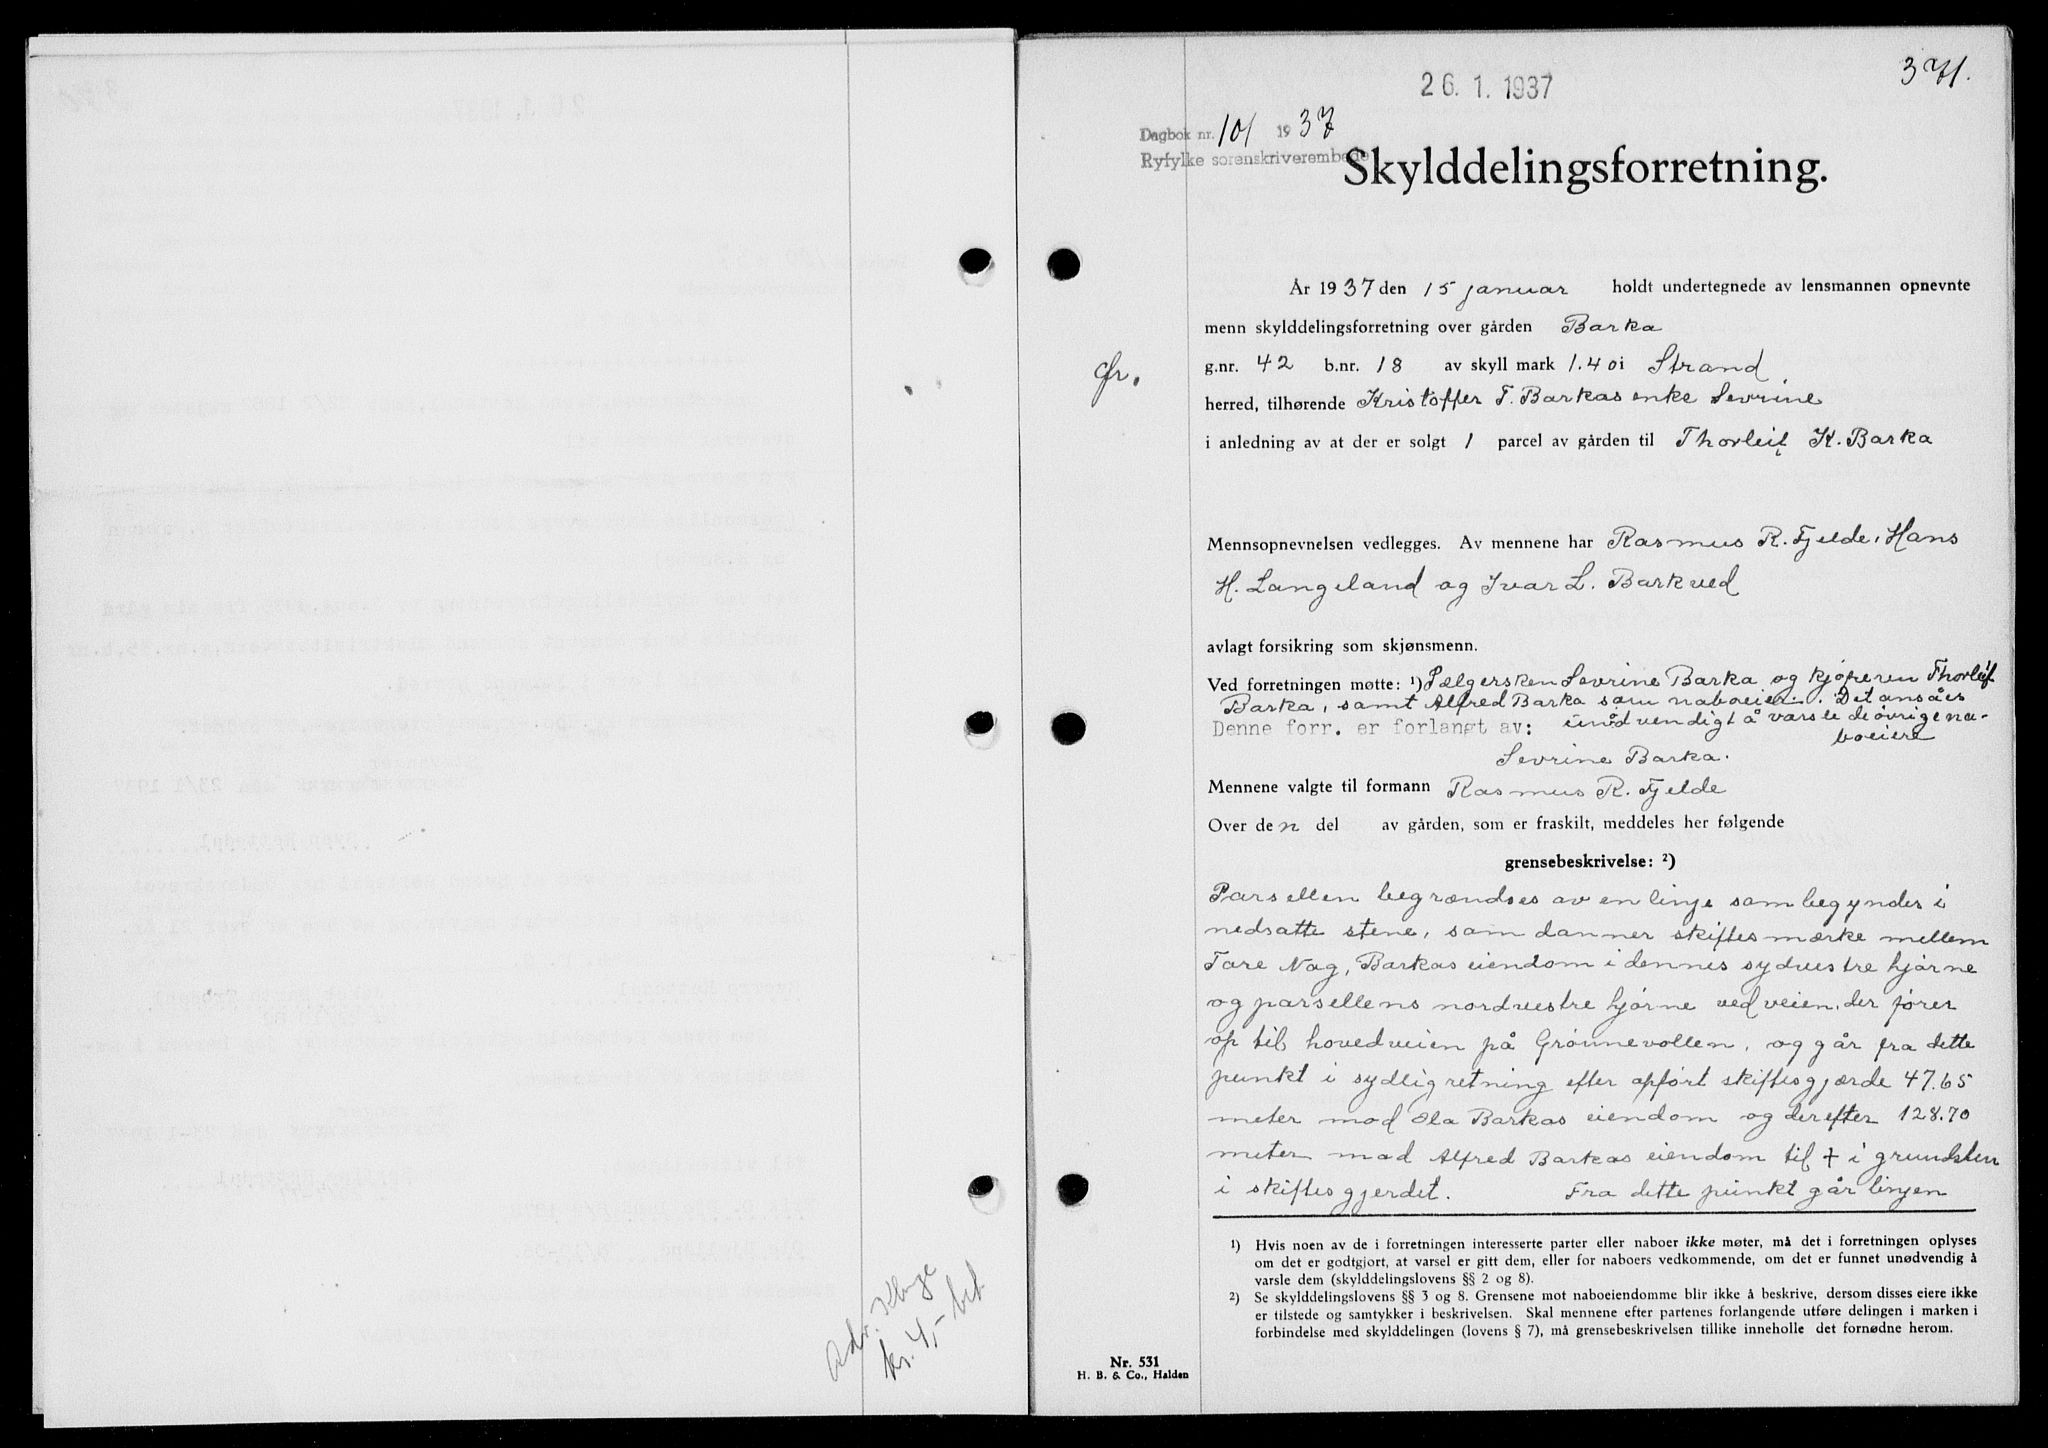 371.
26. 1. 1937
Dagbok nr. 101 1937
Ryfylke sorenskriverembede
Skylddelingsforretning.
År 1937 den 15 januar holdt undertegnede av lensmannen opnevnte
menn skylddelingsforretning over gården Barka
g.nr. 42 b.nr. 18 av skyll mark 1.40 i Strand
herred, tilhørende Kristoffer T. Barkas enke Sevrine
i anledning av at der er solgt 1 parcel av gården til Thorleif K. Barka
Mennsopnevnelsen vedlegges. Av mennene har Rasmus R. Fjelde, Hans
H. Langeland og Ivar L. Barkved
avlagt forsikring som skjønsmenn.
Ved forretningen møtte: 1) Sælgersken Sevrine Barka og kjøperen Thorleif
Barka, samt Alfred Barka som naboeier. Det ansåes
Denne forr. er forlangt av: unødvendigt å varsle de øvrige na-
boeiere
Sevrine Barka.
Mennene valgte til formann Rasmus R. Fjelde
Over den del av gården, som er fraskilt, meddeles her følgende
grensebeskrivelse: 2)
Parsellen begrændses av en linje som begyndes i
nedsatte stene, som danner skiftesmærke mellem
Tore Nag, Barkas eiendom i dennes sydvestre hjørne
og parsellens nordvestre hjørne ved veien, der fører
op til hovedveien på Grønnevollen, og går fra dette
punkt i sydlig retning efter opført skiftesgjærde 47.65
meter mod Ola Barkas eiendom og derefter 128.70
meter mod Alfred Barkas eiendom til + i grundsten
i skiftesgjerdet. Fra dette punkt går linjen
1) Hvis noen av de i forretningen interesserte parter eller naboer ikke møter, må det i forretningen oplyses
om det er godtgjort, at varsel er gitt dem, eller for naboers vedkommende, om det er funnet unødvendig å
varsle dem (skylddelingslovens §§ 2 og 8).
2) Se skylddelingslovens §§ 3 og 8. Grensene mot naboeiendomme blir ikke å beskrive, dersom disses eiere ikke
er tilstede og samtykker i beskrivelsen. Skal mennene efter partenes forlangende utføre delingen i marken i
forbindelse med skylddelingen (lovens § 7), må grensebeskrivelsen tillike inneholle det fornødne herom.
Nr. 531
H. B. & Co., Halden
Adv. Kluge
kr. 4,- bet